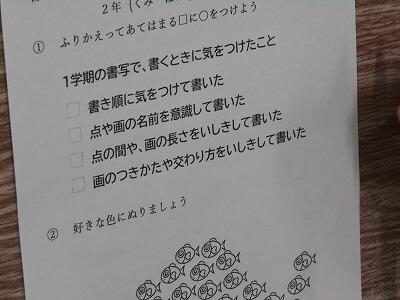 2年
① ふりかえってあてはまる□に○をつけよう
1学期の書写で、書くときに気をつけたこと
□ 書き順に気をつけて書いた
□ 点や画の名前を意識して書いた
□ 点の間や、画の長さをいしきして書いた
□ 画のつきかたや交わり方をいしきして書いた
② 好きな色にぬりましょう